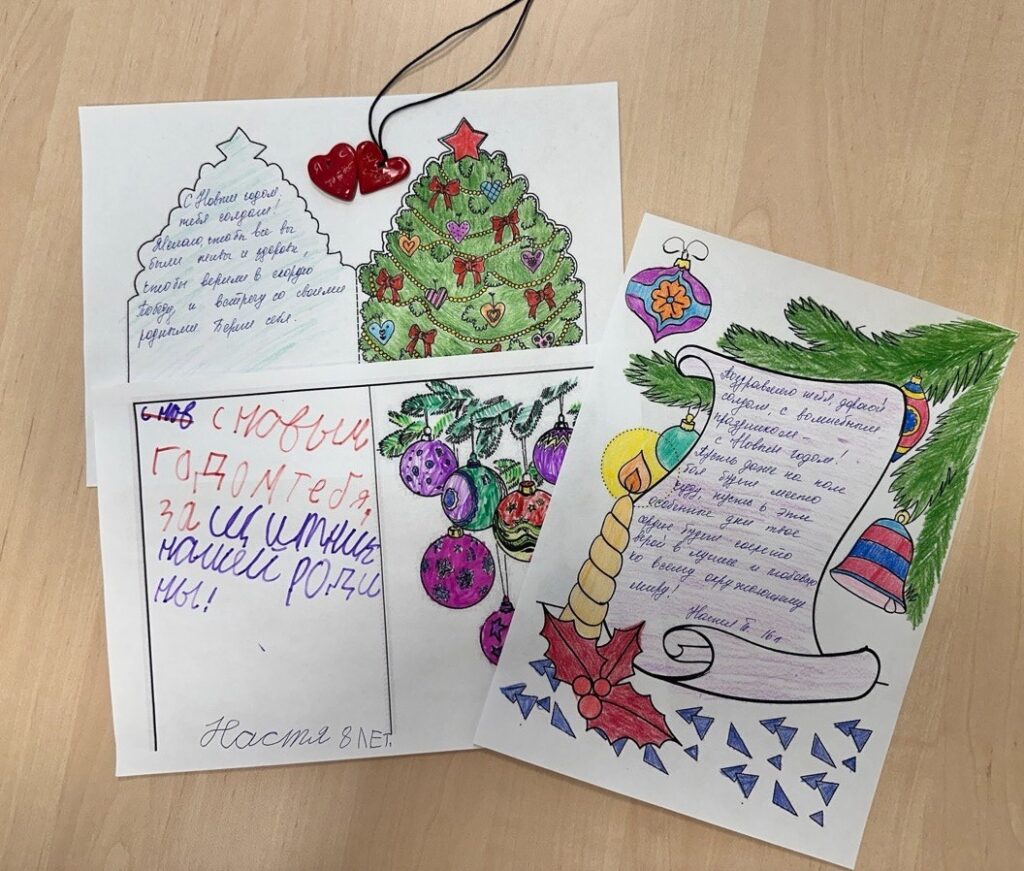 С Новым годом,
тебя солдат!
Желаю, чтобы все вы
были живы и здоровы,
чтобы верили в скорую
Победу и встречу со своими
родными. Береги себя.
с нов с новым
годом тебя,
защитник
нашей Роди
ны!
Настя 8 лет.
Поздравляю тебя, дорогой
солдат, с волшебным
праздником –
с Новым годом!
Пусть даже на поле
боя будет место
чуду, пусть в эти
особенные дни твое
сердце будет согрето
верой в лучшее и любовью
ко всему окружающему
миру!
Настя 16 л.